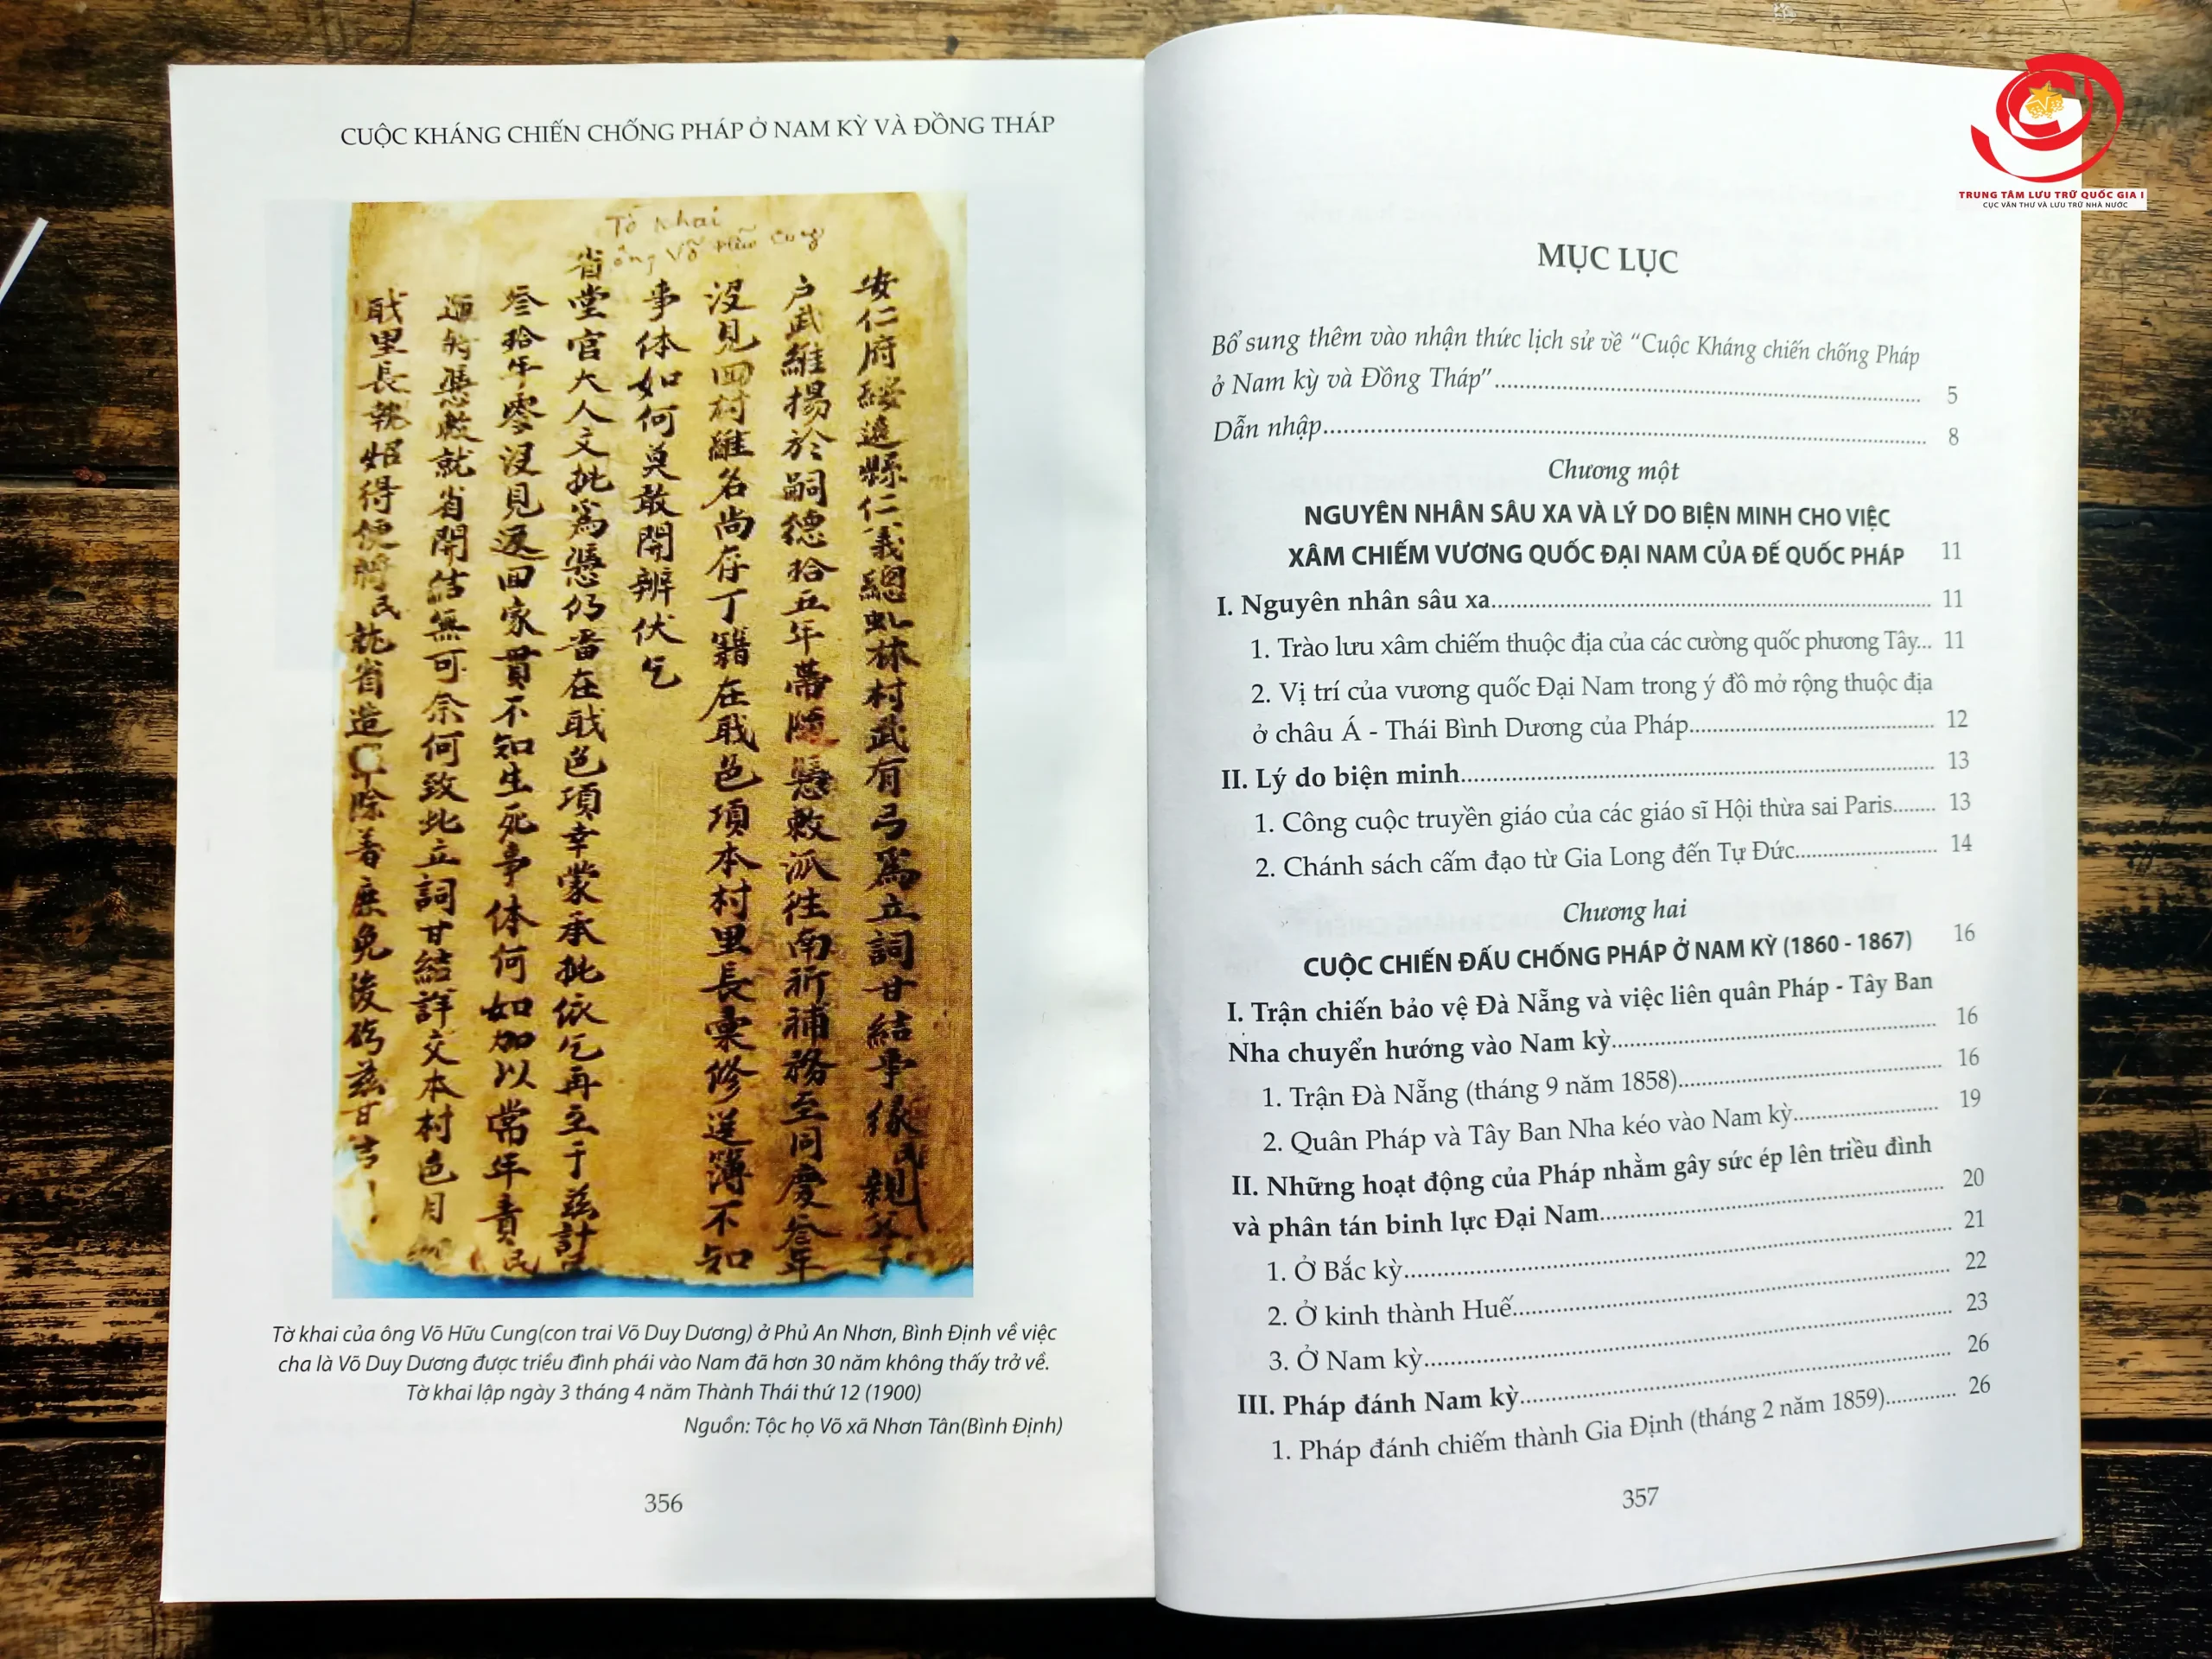 CUỘC KHÁNG CHIẾN CHỐNG PHÁP Ở NAM KỲ VÀ ĐỒNG THÁP
Tờ khai
ông Võ Hữu Cung
安仁府綏遠縣仁義總虬林村武有弓爲立詞甘結事緣民親父
户武維揚於嗣德拾五年蒂隨憑敕派往南圻補務至同慶叁年
没見回村維名尚存丁籍在戢色項本村里長稟修送簿不知
事体如何莫敢開辨伏乞
省堂官大人文批爲憑仍畨在戢色項幸蒙承批依乞再至于茲計
叁拾年零没見返回家貫不知生死事体何如加以常年責民
憑敕就省開結無可奈何致此立詞甘結詳交本村色月
戢里長執炤得便將民就省造 除著庶免後 茲甘
Tờ khai của ông Võ Hữu Cung(con trai Võ Duy Dương) ở Phủ An Nhơn, Bình Định về việc
cha là Võ Duy Dương được triều đình phái vào Nam đã hơn 30 năm không thấy trở về.
Tờ khai lập ngày 3 tháng 4 năm Thành Thái thứ 12 (1900)
Nguồn: Tộc họ Võ xã Nhơn Tân(Bình Định)
356
TRUNG TÂM LƯU TRỮ QUỐC GIA I
CỤC VĂN THƯ VÀ LƯU TRỮ NHÀ NƯỚC
MỤC LỤC
Bổ sung thêm vào nhận thức lịch sử về “Cuộc Kháng chiến chống Pháp
ở Nam kỳ và Đồng Tháp”........ 5
Dẫn nhập........ 8
Chương một
NGUYÊN NHÂN SÂU XA VÀ LÝ DO BIỆN MINH CHO VIỆC
XÂM CHIẾM VƯƠNG QUỐC ĐẠI NAM CỦA ĐẾ QUỐC PHÁP 11
I. Nguyên nhân sâu xa........ 11
1. Trào lưu xâm chiếm thuộc địa của các cường quốc phương Tây... 11
2. Vị trí của vương quốc Đại Nam trong ý đồ mở rộng thuộc địa
ở châu Á - Thái Bình Dương của Pháp........ 12
II. Lý do biện minh........ 13
1. Công cuộc truyền giáo của các giáo sĩ Hội thừa sai Paris........ 13
2. Chánh sách cấm đạo từ Gia Long đến Tự Đức........ 14
Chương hai
CUỘC CHIẾN ĐẤU CHỐNG PHÁP Ở NAM KỲ (1860 - 1867) 16
I. Trận chiến bảo vệ Đà Nẵng và việc liên quân Pháp - Tây Ban
Nha chuyển hướng vào Nam kỳ........ 16
1. Trận Đà Nẵng (tháng 9 năm 1858)........ 16
2. Quân Pháp và Tây Ban Nha kéo vào Nam kỳ........ 19
II. Những hoạt động của Pháp nhằm gây sức ép lên triều đình
và phân tán binh lực Đại Nam........ 20
1. Ở Bắc kỳ........ 21
2. Ở kinh thành Huế........ 22
3. Ở Nam kỳ........ 23
III. Pháp đánh Nam kỳ........ 26
1. Pháp đánh chiếm thành Gia Định (tháng 2 năm 1859)........ 26
26
357